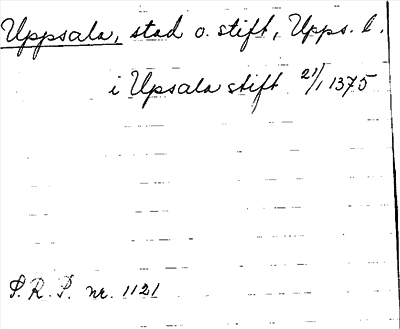 Uppsala, stad o. stift, Upps. l.
i Upsala stift 21/1 1375
S.R.P. nr. 1121